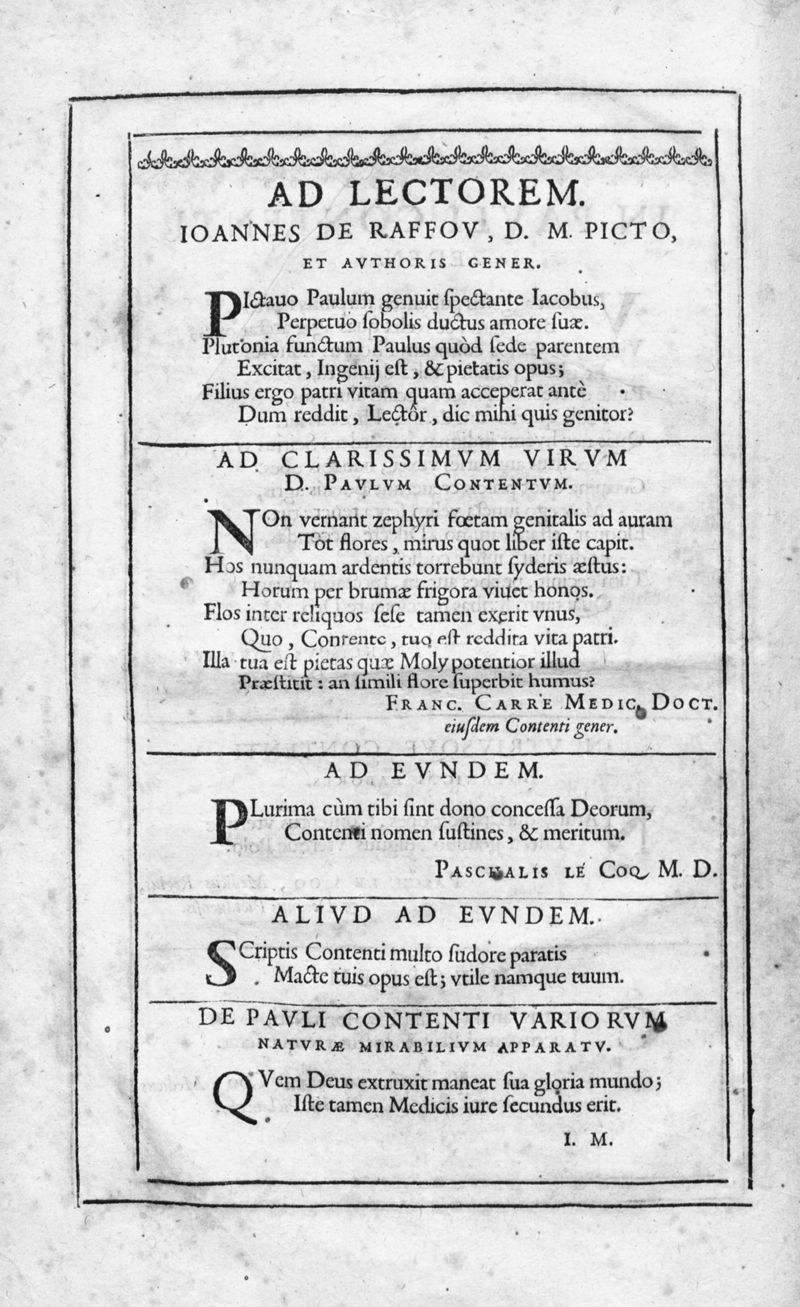 AD LECTOREM.
IOANNES DE RAFFOV, D. M. PICTO,
ET AVTHORIS GENER.
PIctauo Paulum genuit ſpectante Iacobus,
Perpetuo ſobolis ductus amore ſuæ.
Plutonia functum Paulus quòd ſede parentem
Excitat, Ingenij eſt, & pietatis opus;
Filius ergo patri vitam quam acceperat antè
Dum reddit, Lector, dic mihi quis genitor?
AD CLARISSIMVM VIRVM
D. PAVLVM CONTENTVM.
NOn vernant zephyri fœtam genitalis ad auram
Tot flores, mirus quot liber iſte capit.
Hos nunquam ardentis torrebunt ſyderis æſtus:
Horum per brumæ frigora viuet honos.
Flos inter reliquos ſeſe tamen exerit vnus,
Quo, Contente, tuo eſt reddita vita patri.
Illa tua eſt pietas quæ Moly potentior illud
Præſtitit: an ſimili flore ſuperbit humus?
FRANC. CARRE MEDIC. DOCT.
eiuſdem Contenti gener.
AD EVNDEM.
PLurima cùm tibi ſint dono conceſſa Deorum,
Contenti nomen ſuſtines, & meritum.
PASCHALIS LE COQ, M. D.
ALIVD AD EVNDEM.
SCriptis Contenti multo ſudore paratis
Macte tuis opus eſt; vtile namque tuum.
DE PAVLI CONTENTI VARIORVM
NATVRÆ MIRABILIVM APPARATV.
QVem Deus extruxit maneat ſua gloria mundo;
Iſte tamen Medicis iure ſecundus erit.
I. M.